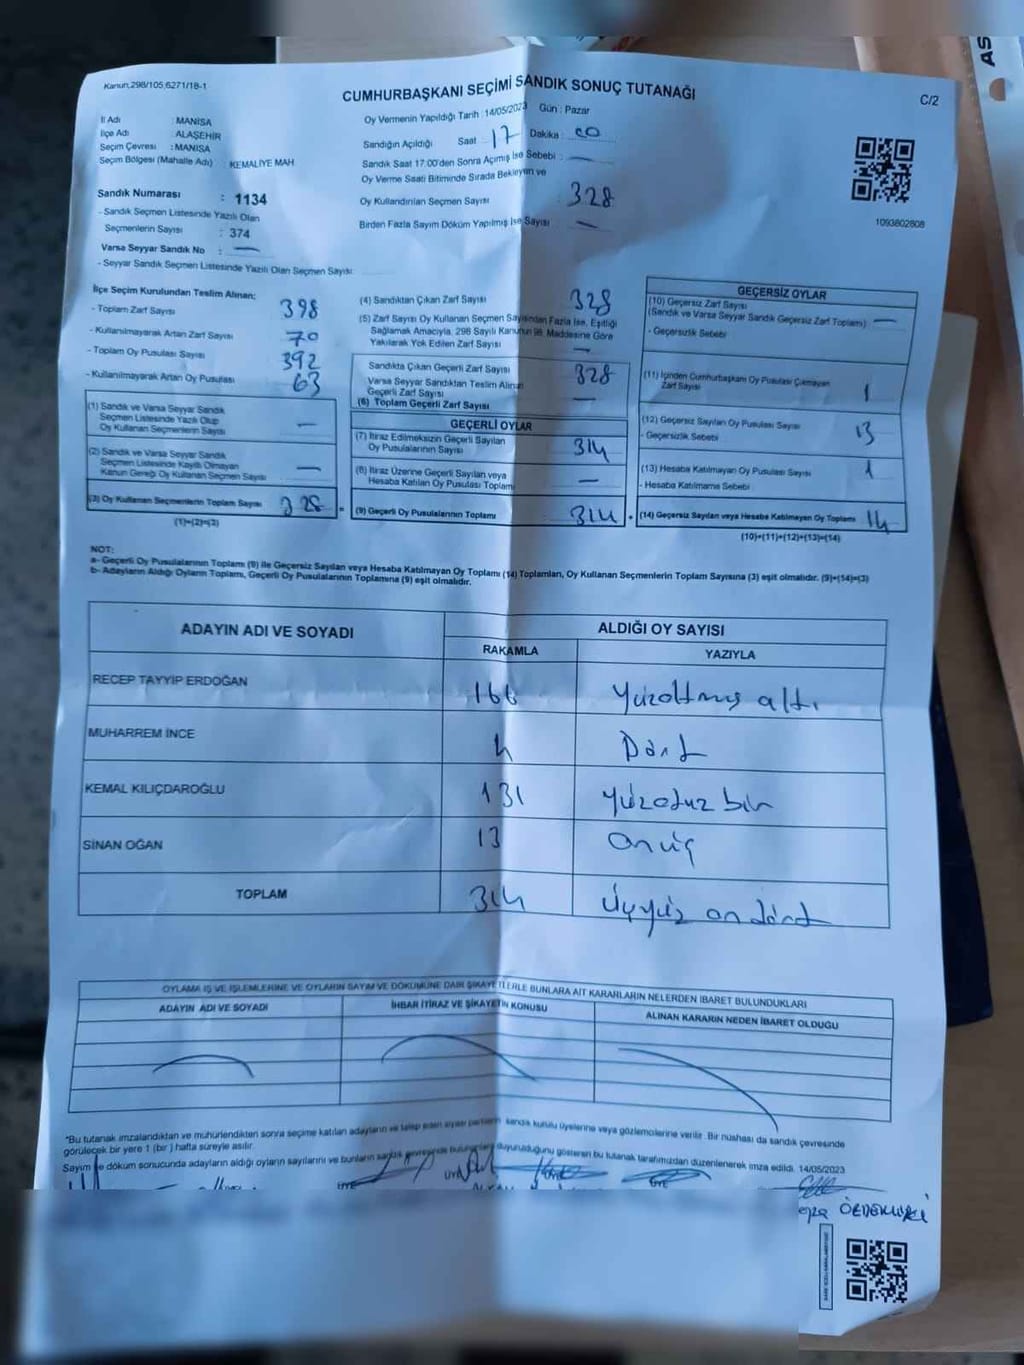 AS
Kanun:298/105,6271/18-1
CUMHURBAŞKANI SEÇİMİ SANDIK SONUÇ TUTANAĞI
C/2
İl Adı : MANİSA
İlçe Adı : ALAŞEHİR
Seçim Çevresi : MANİSA
Seçim Bölgesi (Mahalle Adı) KEMALİYE MAH
Sandık Numarası : 1134
- Sandık Seçmen Listesinde Yazılı Olan
Seçmenlerin Sayısı : 374
Varsa Seyyar Sandık No : —
- Seyyar Sandık Seçmen Listesinde Yazılı Olan Seçmen Sayısı
Oy Vermenin Yapıldığı Tarih : 14/05/2023 Gün : Pazar
Sandığın Açıldığı Saat 17 Dakika : 00
Sandık Saat 17.00'den Sonra Açımış İse Sebebi : —
Oy Verme Saati Bitiminde Sırada Bekleyen ve
Oy Kullandırılan Seçmen Sayısı : 328
Birden Fazla Sayım Döküm Yapılmış İse Sayısı —
1093802808
İlçe Seçim Kurulundan Teslim Alınan;
- Toplam Zarf Sayısı 398
- Kullanılmayarak Artan Zarf Sayısı 70
- Toplam Oy Pusulası Sayısı 392
- Kullanılmayarak Artan Oy Pusulası 63
(1) Sandık ve Varsa Seyyar Sandık
Seçmen Listesinde Yazılı Olup
Oy Kullanan Seçmenlerin Sayısı —
(2) Sandık ve Varsa Seyyar Sandık
Seçmen Listesinde Kayıtlı Olmayan
Kanun Gereği Oy Kullanan Seçmen Sayısı —
(3) Oy Kullanan Seçmenlerin Toplam Sayısı 328 =
(1)+(2)=(3)
(4) Sandıktan Çıkan Zarf Sayısı 328
(5) Zarf Sayısı Oy Kullanan Seçmen Sayısından Fazla İse, Eşitliği
Sağlamak Amacıyla, 298 Sayılı Kanunun 98. Maddesine Göre
Yakılarak Yok Edilen Zarf Sayısı —
Sandıkta Çıkan Geçerli Zarf Sayısı 328
Varsa Seyyar Sandıktan Teslim Alınan
Geçerli Zarf Sayısı —
(6) Toplam Geçerli Zarf Sayısı
GEÇERLİ OYLAR
(7) İtiraz Edilmeksizin Geçerli Sayılan
Oy Pusulalarının Sayısı 314
(8) İtiraz Üzerine Geçerli Sayılan veya
Hesaba Katılan Oy Pusulası Toplamı —
(9) Geçerli Oy Pusulalarının Toplamı 314 +
GEÇERSİZ OYLAR
(10) Geçersiz Zarf Sayısı
(Sandık ve Varsa Seyyar Sandık Geçersiz Zarf Toplamı) —
- Geçersizlik Sebebi
(11) İçinden Cumhurbaşkanı Oy Pusulası Çıkmayan
Zarf Sayısı 1
(12) Geçersiz Sayılan Oy Pusulası Sayısı 13
- Geçersizlik Sebebi
(13) Hesaba Katılmayan Oy Pusulası Sayısı 1
- Hesaba Katılmama Sebebi
(14) Geçersiz Sayılan veya Hesaba Katılmayan Oy Toplamı 14
(10)+(11)+(12)+(13)=(14)
NOT:
a- Geçerli Oy Pusulalarının Toplamı (9) ile Geçersiz Sayılan veya Hesaba Katılmayan Oy Toplamı (14) Toplamları, Oy Kullanan Seçmenlerin Toplam Sayısına (3) eşit olmalıdır. (9)+(14)=(3)
b- Adayların Aldığı Oyların Toplamı, Geçerli Oy Pusulalarının Toplamına (9) eşit olmalıdır.
ADAYIN ADI VE SOYADI ALDIĞI OY SAYISI
RAKAMLA YAZIYLA
RECEP TAYYİP ERDOĞAN 166 Yüzaltmış altı
MUHARREM İNCE 4 Dört
KEMAL KILIÇDAROĞLU 131 Yüzotuz bir
SİNAN OĞAN 13 Onüç
TOPLAM 314 Üçyüz on dört
OYLAMA İŞ VE İŞLEMLERİNE VE OYLARIN SAYIM VE DÖKÜMÜNE DAİR ŞİKAYETLERLE BUNLARA AİT KARARLARIN NELERDEN İBARET BULUNDUKLARI
ADAYIN ADI VE SOYADI İHBAR İTİRAZ VE ŞİKAYETİN KONUSU ALINAN KARARIN NEDEN İBARET OLDUĞU
"Bu tutanak imzalandıktan ve mühürlendikten sonra seçime katılan adayların ve talep eden siyasi partilerin sandık kurulu üyelerine veya gözlemcilerine verilir. Bir nüshası da sandık çevresinde
görülecek bir yere 1 (bir) hafta süreyle asılır.
Sayım ve döküm sonucunda adayların aldığı oyların sayılarını ve bunların sandık çevresinde bulunanlara duyurulduğunu gösteren bu tutanak tarafımızdan düzenlenerek imza edildi. 14/05/2023
ÜYE ÜYE ÜYE